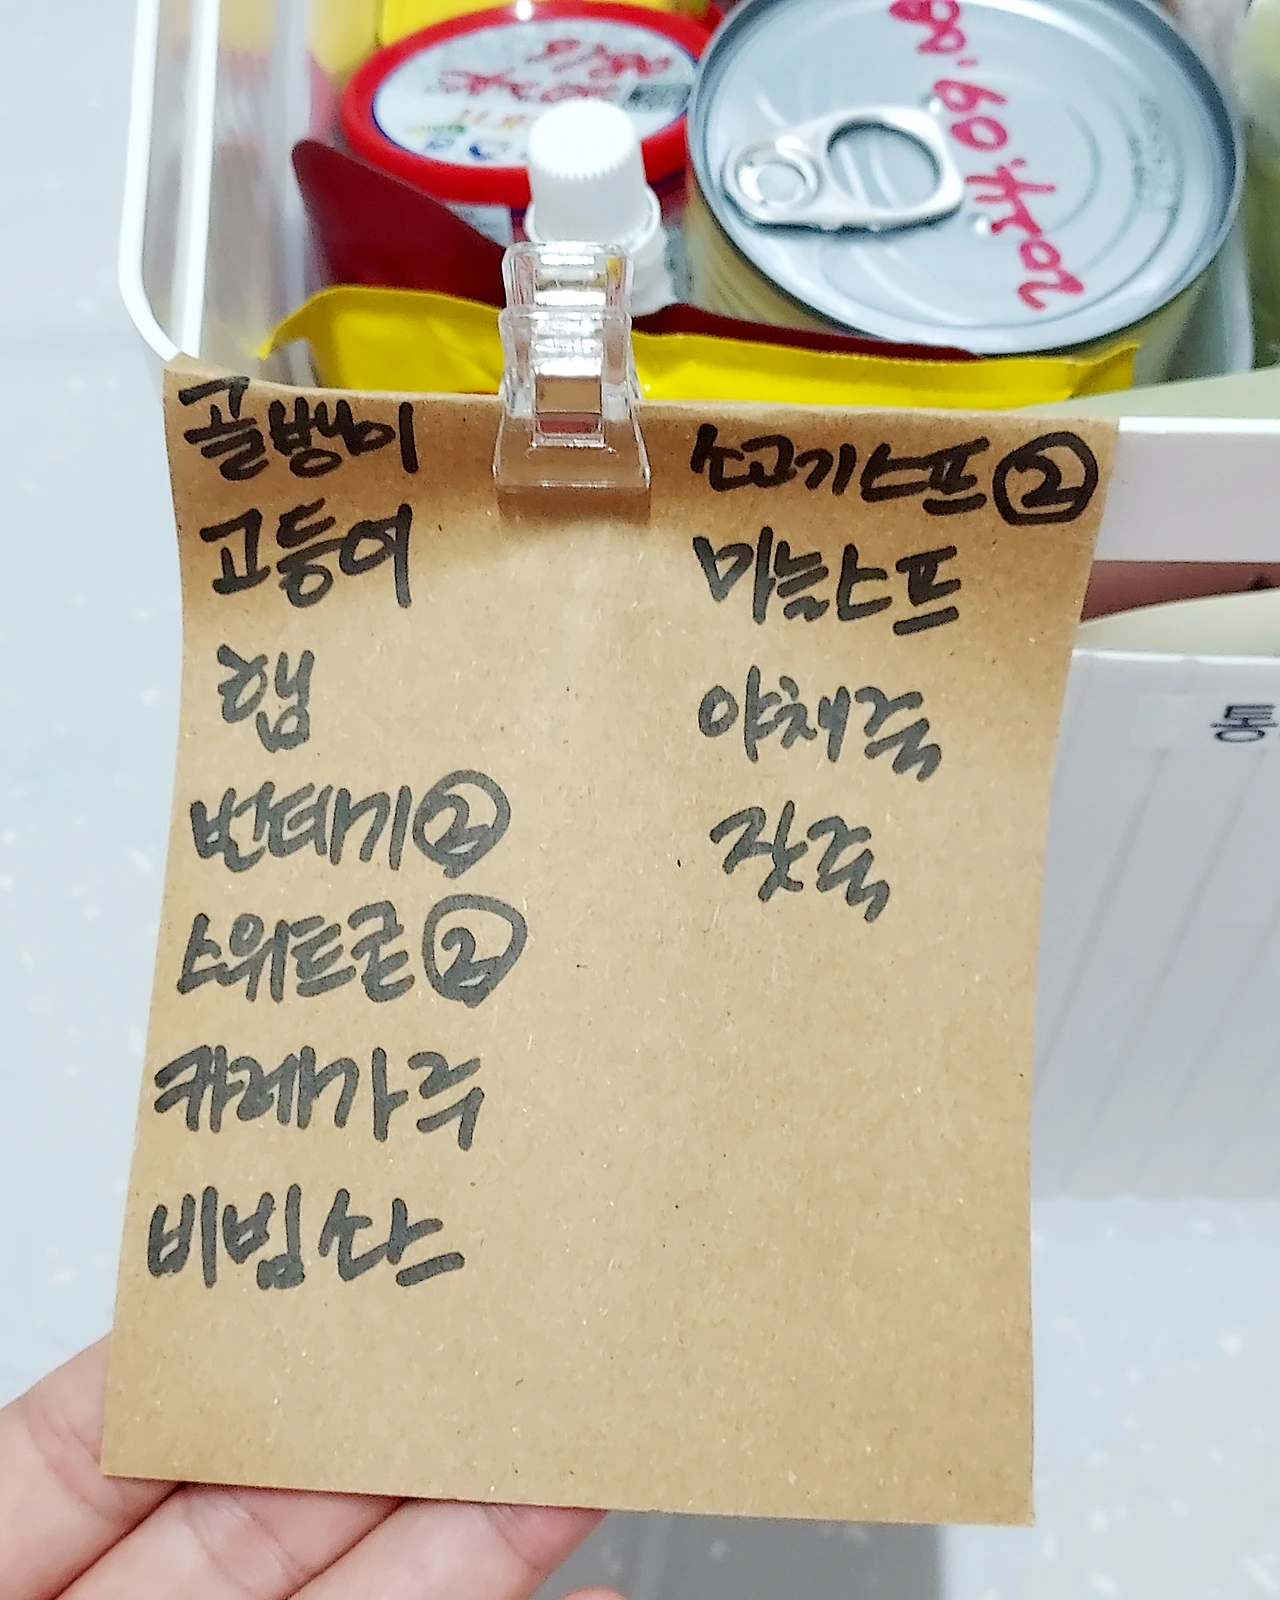 골뱅이
고등어
햄
번데기 ②
스위트콘 ②
카레가루
비빔소스
소고기스프 ②
마늘스프
야채죽
잣죽
통